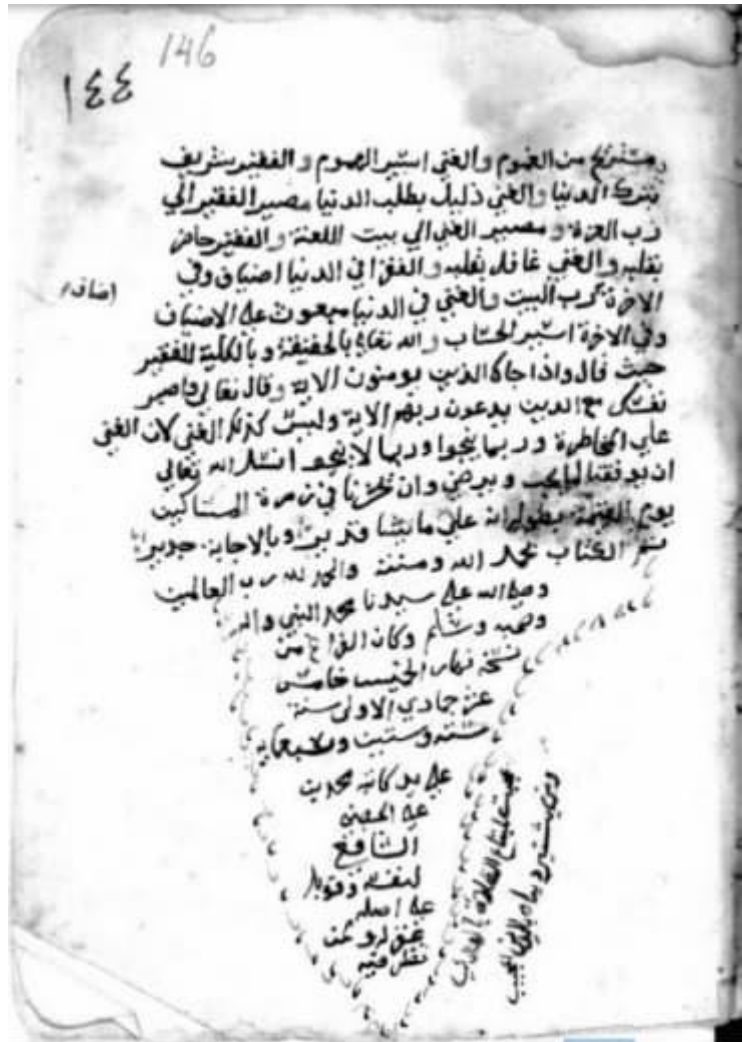 146
١٤٤
مستريح من الغموم والغني اسير الهموم والفقير شريف
بترك الدنيا والغني ذليل بطلب الدنيا مصير الفقير الي
رب العزة ومصير الغني الي بيت اللعنة والفقير حاضر
بقلبه والغني غافل بقلبه والفقرا في الدنيا اضياف وفي
اضافه
الاخرة كرب البيت والغني في الدنيا مبعوث علي الاضياف
وفي الاخرة اسير الحساب والله تعالي بالحقيقة وبالكلية للفقير
حيث قال واذا جاك الذين يومنون الاية وقال تعالي واصبر
نفسك مع الذين يدعون ربهم الاية وليس كذلك الغني لان الغني
علي المخاطرة وربما ينجوا وربما لا ينجو انسئل الله تعالي
ان يوفقنا لما يحب ويرضي وان يحشرنا في زمرة المساكين
يوم القيمة بطوله انه علي ما يشا قدير وبالاجابة جدير
تم الكتاب بحمد الله ومنته والحمد لله رب العالمين
وصلي الله علي سيدنا محمد النبي واله
وصحبه وسلم وكان الفراغ من
نسخه نهار الخميس خامس
عشر جمادي الاولى سنة
ستة وستين وسبعمايه
علي يد كاتبه محمد بن
علي
الشافعي
لنفسه وقوبل
علي اصله
غفر له ولمن
نظر فيه